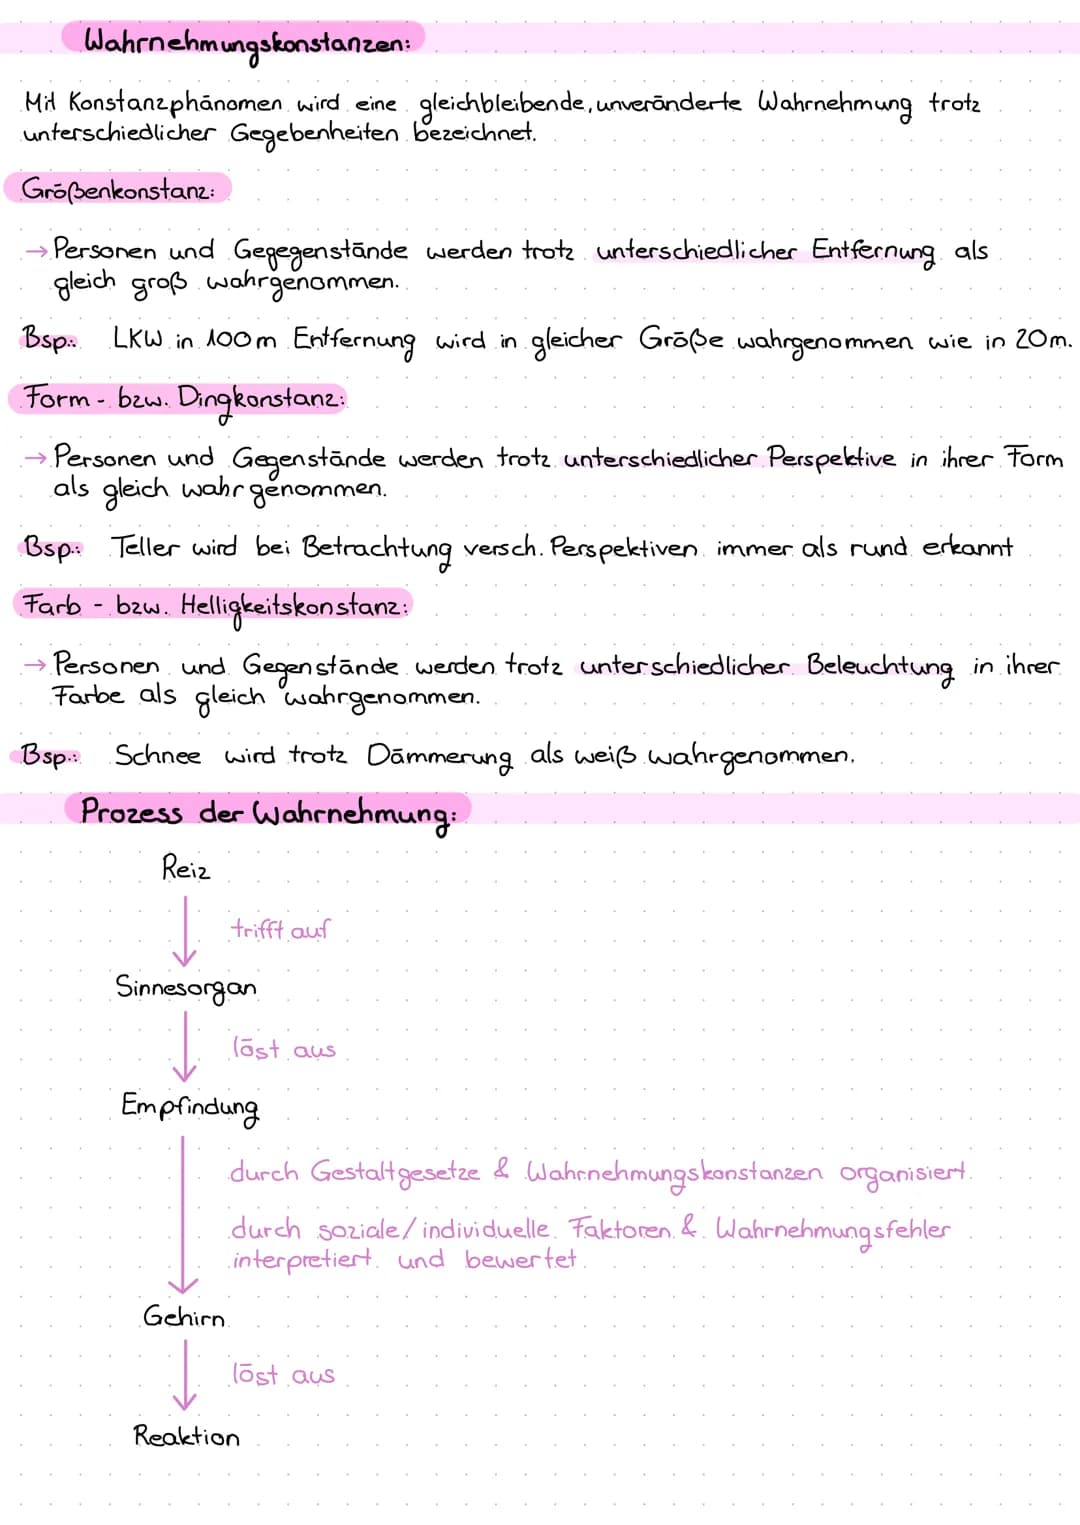 Wahrnehmungskonstanzen:
Mit Konstanzphänomen wird eine gleichbleibende, unveränderte Wahrnehmung trotz
unterschiedlicher Gegebenheiten bezeichnet.
Größenkonstanz:
→ Personen und Gegegenstände werden trotz unterschiedlicher Entfernung als
gleich groß wahrgenommen.
Bsp.: LKW in 100m Entfernung wird in gleicher Größe wahrgenommen wie in 20m.
Form- bzw. Dingkonstanz:
→ Personen und Gegenstände werden trotz unterschiedlicher Perspektive in ihrer Form
als gleich wahrgenommen.
Bsp.: Teller wird bei Betrachtung versch. Perspektiven immer als rund erkannt
Farb- bzw. Helligkeitskonstanz:
→ Personen und Gegenstände werden trotz unterschiedlicher Beleuchtung in ihrer
Farbe als gleich wahrgenommen.
Bsp.: Schnee wird trotz Dämmerung als weiß wahrgenommen.
Prozess der Wahrnehmung:
Reiz
trifft auf
Sinnesorgan
löst aus
Empfindung
durch Gestaltgesetze & Wahrnehmungskonstanzen organisiert
durch soziale/individuelle Faktoren & Wahrnehmungsfehler
interpretiert und bewertet
Gehirn
löst aus
Reaktion